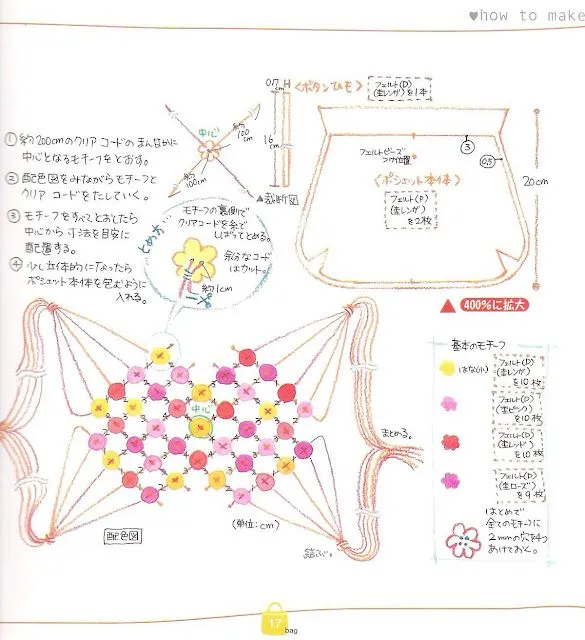 ♥how to make
①約200cmのクリアコードのまんなかに
中心となるモチーフをとおす。
②配色図をみながらモチーフと
クリアコードをたしていく。
③モチーフをすべてとおしたら
中心から寸法を目安に
配置する。
④少し立体的になったら
ポシェット本体を包むように
入れる。
中心
約
100
cm
約
100cm
▲裁断図
0.7
cm
16
cm
<ボタンひも>
フェルト(D)
(杢レンガ)
を1本
フェルトビーズ
つけ位置
③
0.5
<ポシェット本体>
フェルト(P)
(杢レンガ)
を2枚
20cm
▲400%に拡大
とめ方
モチーフの裏側で
クリアコードを糸で
しばってとめる。
余分なコード
はカット。
約1cm
中心
まとめる。
(単位:cm)
配色図
結ぶ。
基本のモチーフ
はな(小)
フェルト(D)
(杢レンガ)
を10枚
フェルト(D)
(杢ピンク)
を10枚
フェルト(D)
(杢レッド)
を10枚
フェルト(D)
(杢ローズ)
を9枚
はじめに
全てのモチーフに
2mmの穴を4つ
あけておく。
17
bag